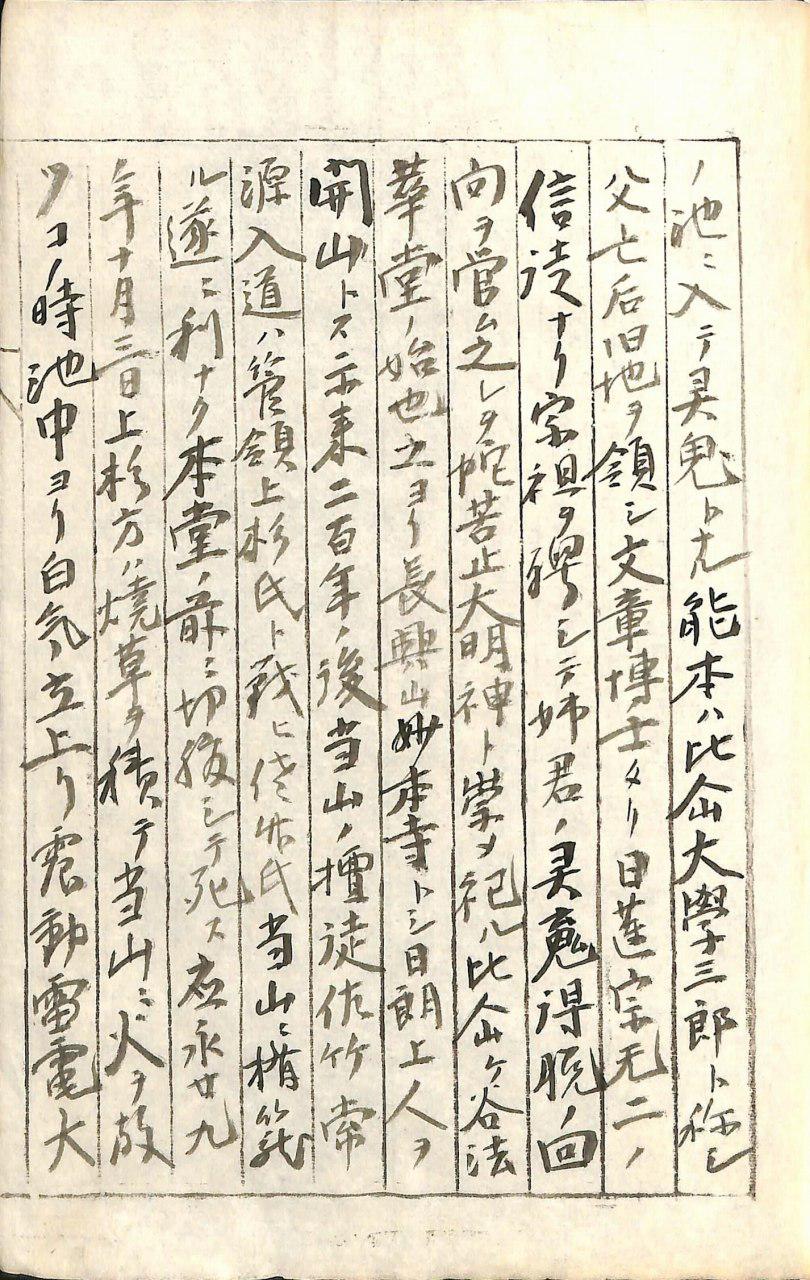 ノ池ニ入テ灵鬼トナル能本ハ比企大學三郎ト称シ
父亡后旧地ヲ領シ文章博士タリ日蓮宗无二ノ
信徒ナリ宗祖ヲ聘シテ姉君ノ灵鬼得脱ノ回
向ヲ営ム之レヲ蛇苦止大明神ト崇メ祀ル比企ケ谷法
華堂ノ始也之ヨリ長興山妙本寺トシ日朗上人ヲ
開山トス尓来二百年ノ後当山ノ檀徒佐竹常
源入道ハ管領上杉氏ト戦ヒ佐竹氏当山ニ楯籠
ル遂ニ利ナク本堂ノ前ニ切腹シテ死ス應永廿九
年十月三日上杉方ハ燒草ヲ積テ当山ニ火ヲ放
ツコノ時池中ヨリ白気立上リ震動雷電大